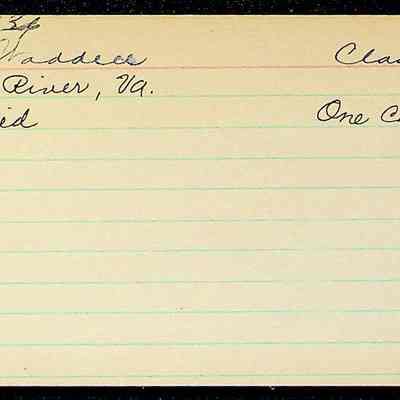 Waddell Clas
River, Va.
ied One C